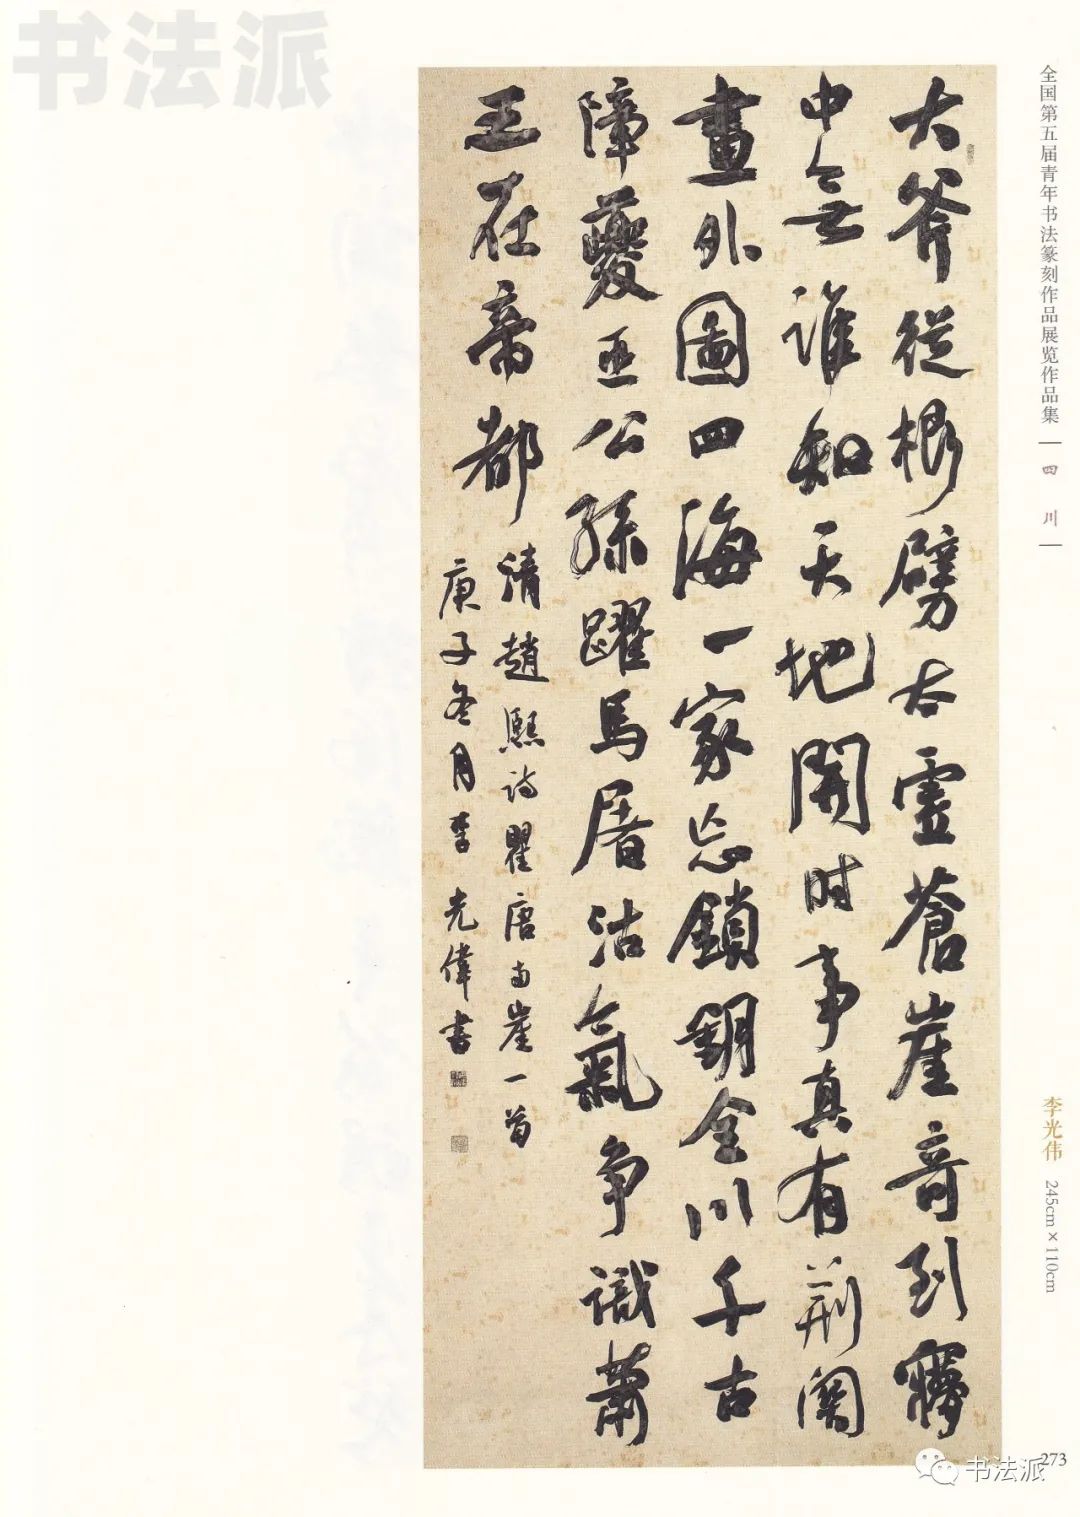 大斧從根劈右靈蒼崖奇到夢
中無誰知天地開時事真有荆關
畫外圖四海一家忘鎖鑰全川千古
障夔巫公孫躍馬屠沽氣争識蕭
王在帝都
清趙熙詩瞿唐南崖一首
庚子冬月李光偉書
全国第五届青年书法篆刻作品展览作品集
四川
李光伟 245cm×110cm
273
书法派
书法派